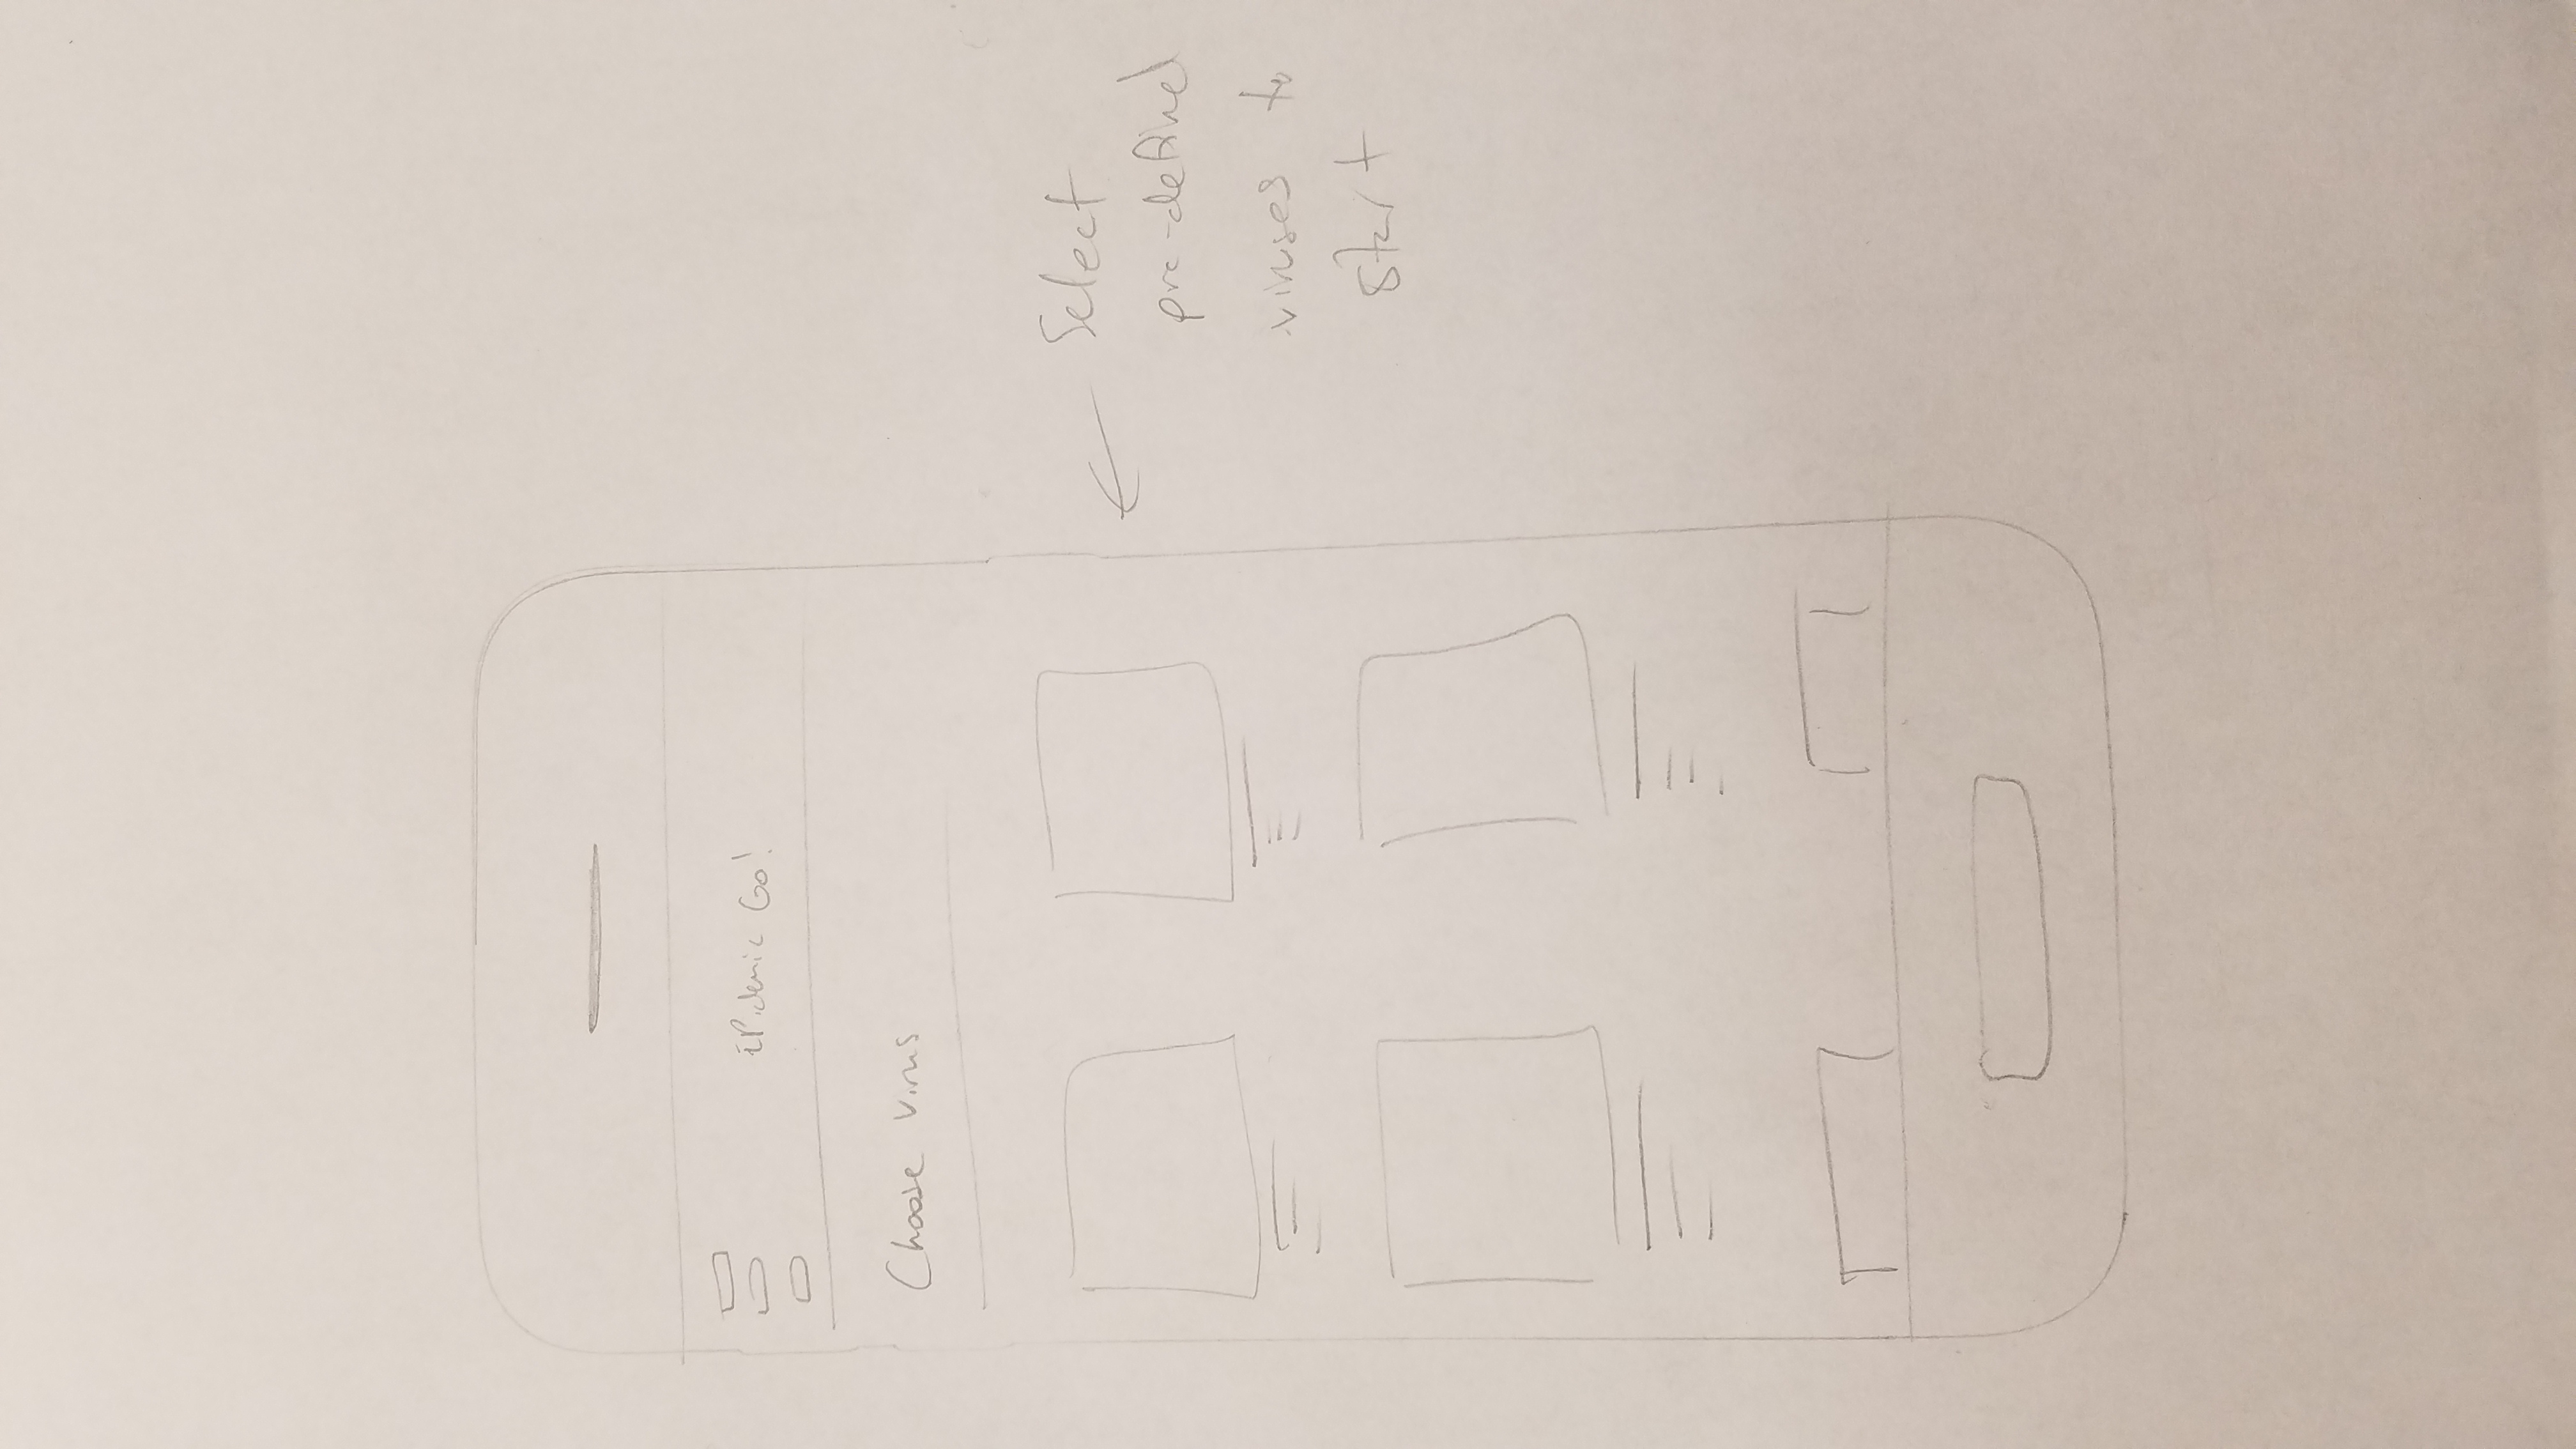 Epidemic Go!
Choose Virus
Select
pre-defined
viruses to
start